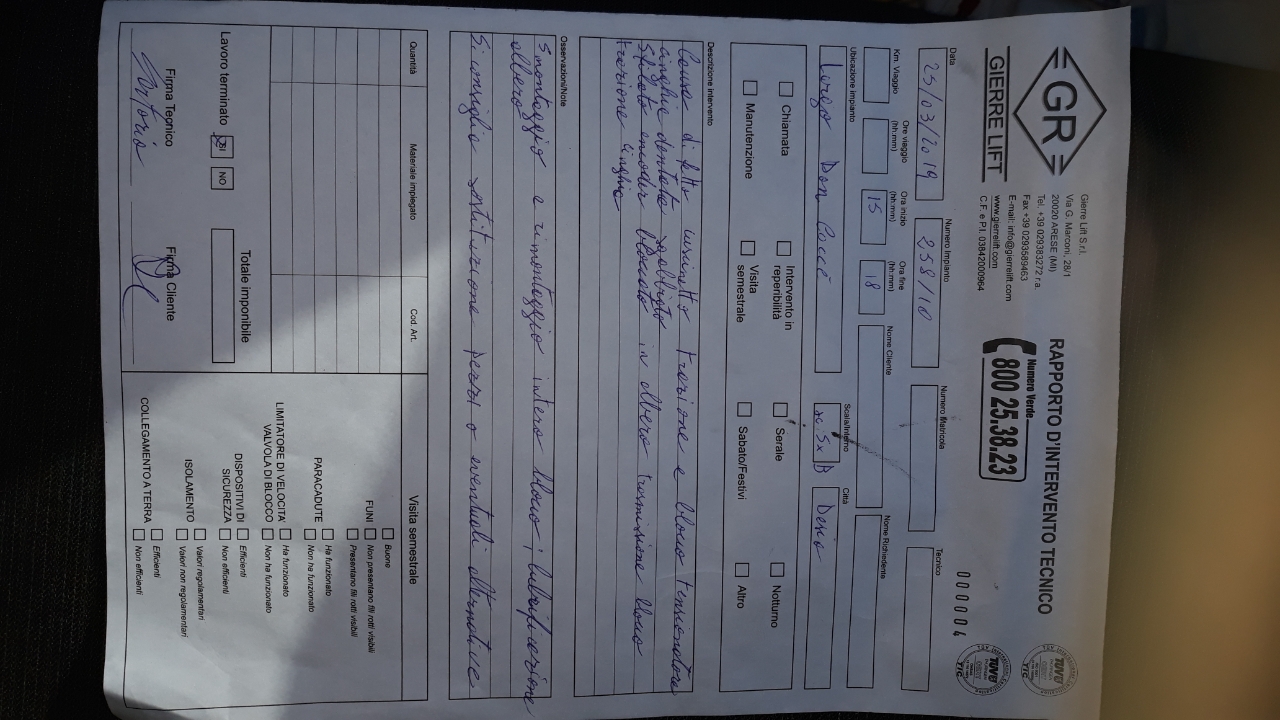 GR
GIERRE LIFT
Gierre Lift S.r.l.
Via G. Marconi, 28/1
20020 ARESE (MI)
Tel. +39 029383272 r.a.
Fax +39 0293589463
E-mail: info@gierrelift.com
www.gierrelift.com
C.F. e P.I. 03842000964
RAPPORTO D'INTERVENTO TECNICO
Numero Verde
800 25.38.23
000004
TÜV
Data
Numero Impianto
Numero Matricola
Tecnico
25/03/2019
258/10
Km. Viaggio
Ore viaggio (hh:mm)
Ora inizio (hh:mm)
Ora fine (hh:mm)
Nome Cliente
Nome Richiedente
15
18
Ubicazione Impianto
Scala/Interno
Città
Largo Don
sc. Sx B
Desio
Chiamata
Intervento in reperibilità
Serale
Notturno
Manutenzione
Visita semestrale
Sabato/Festivi
Altro
Descrizione intervento
trazione e blocco tensionatore
cinghie dentate
encoder bloccato in albero trasmissione blocco
trazione cinghie
Osservazioni/Note
Smontaggio e rimontaggio intero blocco, lubrificazione
albero
Si consiglia sostituzione pezzi o eventuali alternative
Quantità
Materiale impiegato
Cod. Art.
Visita semestrale
FUNI
Buone
Non presentano fili rotti visibili
Presentano fili rotti visibili
PARACADUTE
Ha funzionato
Non ha funzionato
LIMITATORE DI VELOCITA'
VALVOLA DI BLOCCO
Ha funzionato
Non ha funzionato
DISPOSITIVI DI SICUREZZA
Efficienti
Non efficienti
ISOLAMENTO
Valori regolamentari
Valori non regolamentari
COLLEGAMENTO A TERRA
Efficienti
Non efficienti
Lavoro terminato
SI
NO
Totale imponibile
Firma Tecnico
Firma Cliente